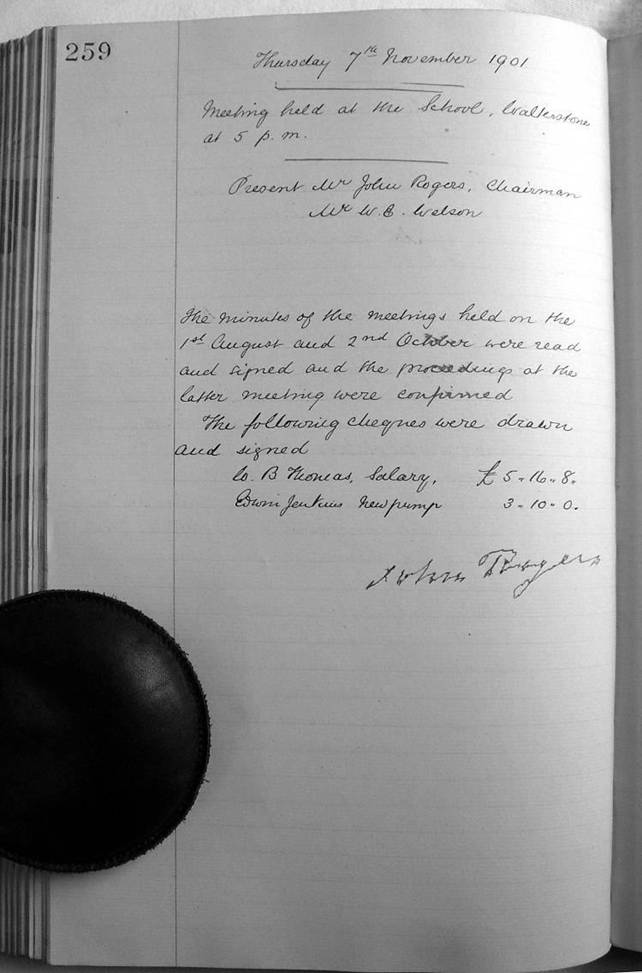 259
Thursday 7th November 1901
Meeting held at the School, Walterstone
at 5 p.m.
Present Mr John Rogers, Chairman
Mr W. E. Welson
The minutes of the meetings held on the
1st August and 2nd October were read
and signed and the proceedings at the
latter meeting were confirmed
The following cheques were drawn
and signed
W. B Thomas, Salary, £ 5-16-8.
Edwin Jenkins New pump 3-10-0.
John Rogers